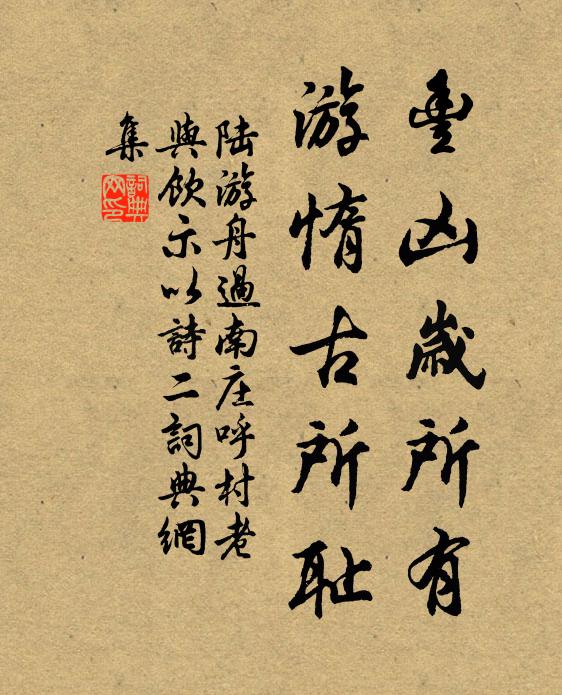 豐凶歲所有
游惰古所耻
陆游舟過南庄呼村老
與飲示以詩二詞典網
集
詞典
网印